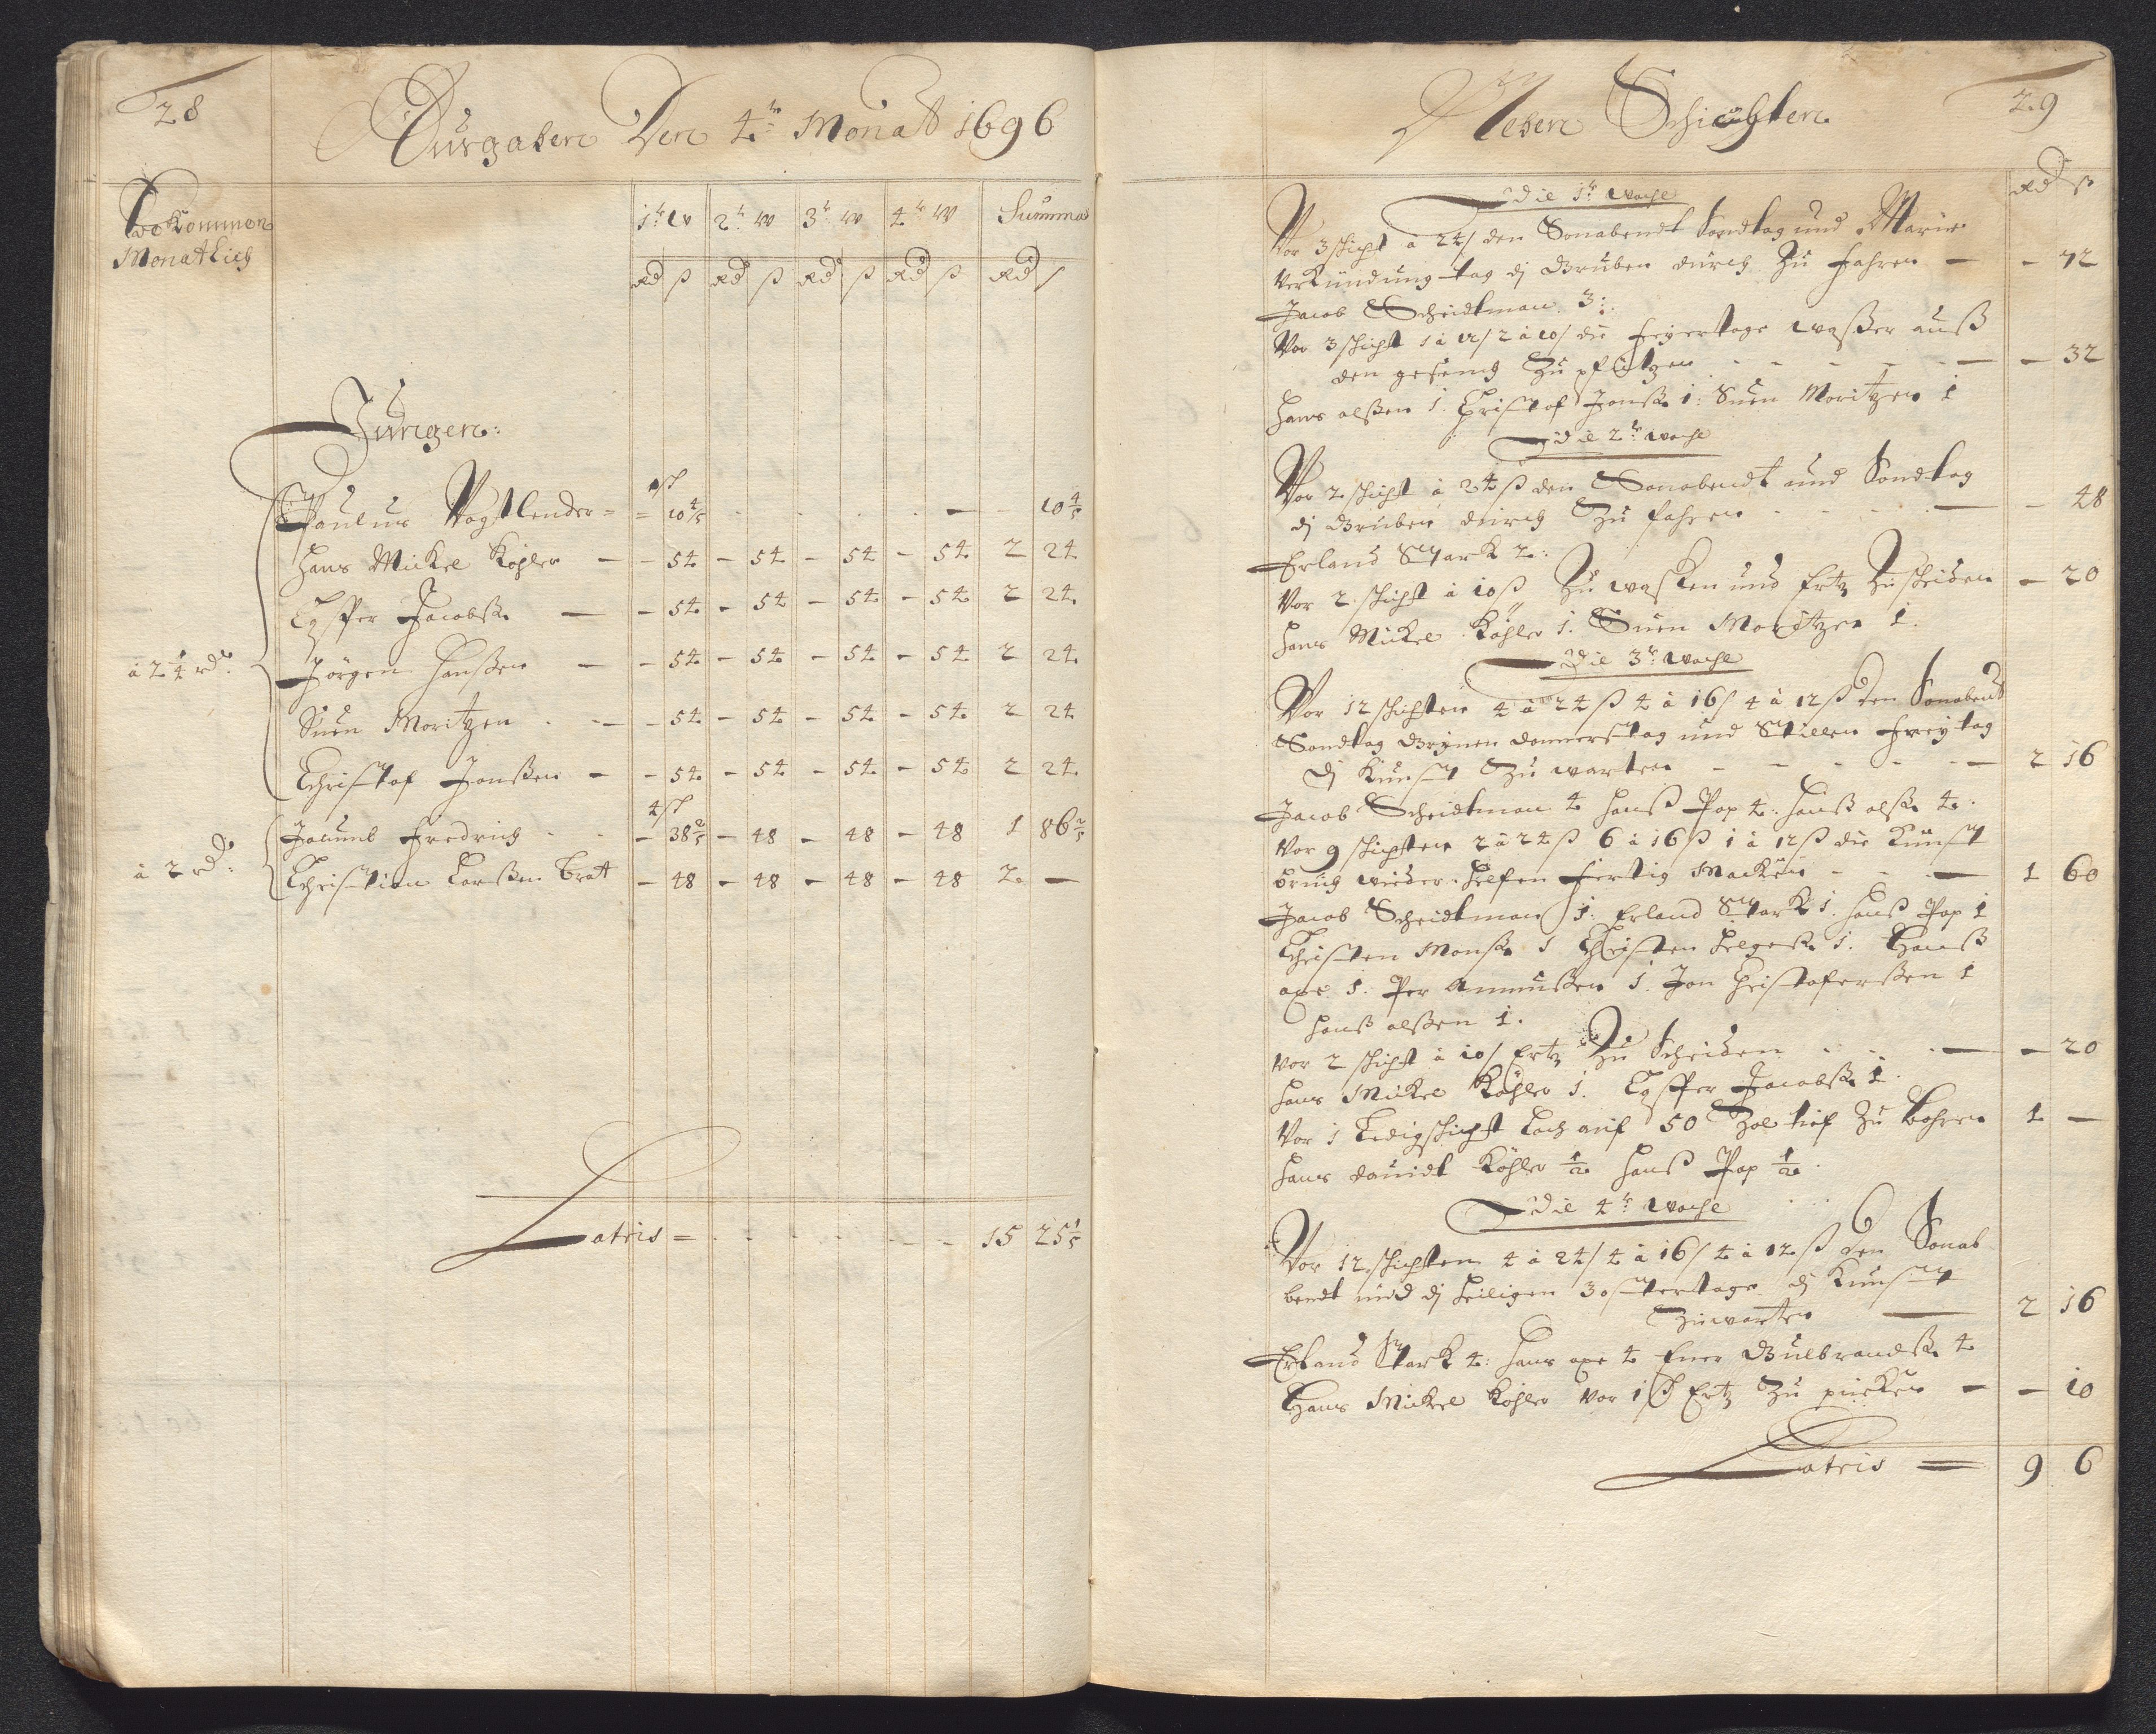 28
Ausgaben Den 4t Monat 1696
Bekommen
Monatlich
1t W 2t W 3t W 4t W Summa
Rd ß Rd ß Rd ß Rd ß Rd ß
Jungen:
Paulus Vogtlender = = 10 4/5 - - - - 10 4/5
Hans Mickel Köhler - - 54 - 54 - 54 - 54 2 24
Jacobß. - - 54 - 54 - 54 - 54 2 24
à 2 1/4 rd. Jörgen Hanßen - - 54 - 54 - 54 - 54 2 24
Suen Moritzen - - 54 - 54 - 54 - 54 2 24
Christof Jonßen - - 54 - 54 - 54 - 54 2 24
4 sch
Fredrich - - 38 2/5 - 48 - 48 - 48 1 86 2/5
à 2 rd. Christian Larßen Bratt - 48 - 48 - 48 - 48 2 -
Latris = 15 25 1/5
29
Neben Schichten
Rd ß
Die 1t Woche
Vor 3 schicht à 24 ß den Sonabendt Sondtag und Mariæ
Verkündung tag di Gruben durch Zu fahren - - 72
Jacob Scheidtman 3:
Vor 3 schicht 1 à 12 ß 2 à 10 ß die feyertage waßer auß
den gesenck Zu pfützen - - 32
Hans olßen 1. Christof Jonß. 1: Suen Moritzen 1
Die 2t Woche
Vor 2 schicht à 24 ß den Sonabendt und Sondtag
di Gruben durch Zu fahren - - 48
Erland Stark 2:
Vor 2 schicht à 10 ß Zu wasken und Ertz Zu scheiden - 20
Hans Mickel Köhler 1. Suen Moritzen 1.
Die 3t Woche
Vor 12 schichten 4 à 24 ß 4 à 16 ß 4 à 12 ß den Sonabend
Sondtag Grünen donnerstag und Stillen freytag
di Kunst Zu warten - - 2 16
Jacob Scheidtman 4 Hanß Pop 4. Hanß olß. 4.
Vor 9 schichten 2 à 24 ß 6 à 16 ß 1 à 12 ß die Kunst
bruch wieder helfen fertig Macken - - 1 60
Jacob Scheidtman 1. Erland Stark 1. Hanß Pop 1
Christen Monß. 1 Christen Helgeß. 1. Hanß
axe 1. Per Amunßen 1. Jon Christoferßen 1
Hanß olßen 1.
Vor 2 schicht à 10 ß Ertz Zu Scheiden - - 20
Hans Mickel Köhler 1. Jacobß. 1.
Vor 1 Ledigschicht Loch auf 50 Zol tief Zu bohren 1 -
Hans davidt Köhler 1/2 Hanß Pop 1/2.
Die 4t Woche
Vor 12 schichten 4 à 24 ß 4 à 16 ß 4 à 12 ß den Sonab
bendt und di heiligen 3 ostertage di Kunst
Zu warten - 2 16
Erland Stark 4: Hans axe 4 Ener Gulbrandß. 4
Hans Mickel Köhler vor 1 sch Ertz Zu pucken - - 10
Latris = 9 6